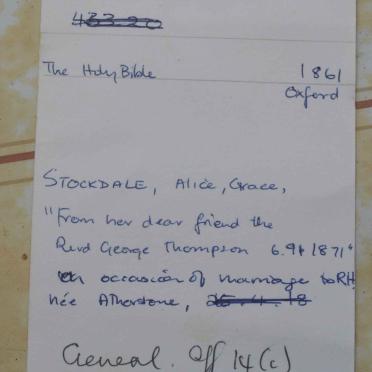 433.20
The Holy Bible 1861
Oxford
STOCKDALE, Alice, Grace,
"From her dear friend the
Revd George Thompson 6.9t 1871"
on occasion of marriage to RH
née Atherstone,
General. Off 14(c)